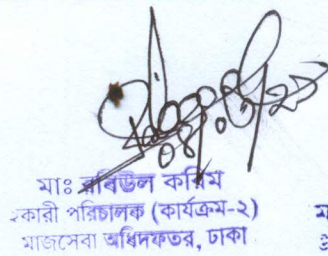 মাঃ রবিউল করিম
কারী পরিচালক (কার্যক্রম-২)
মাজসেবা অধিদফতর, ঢাকা